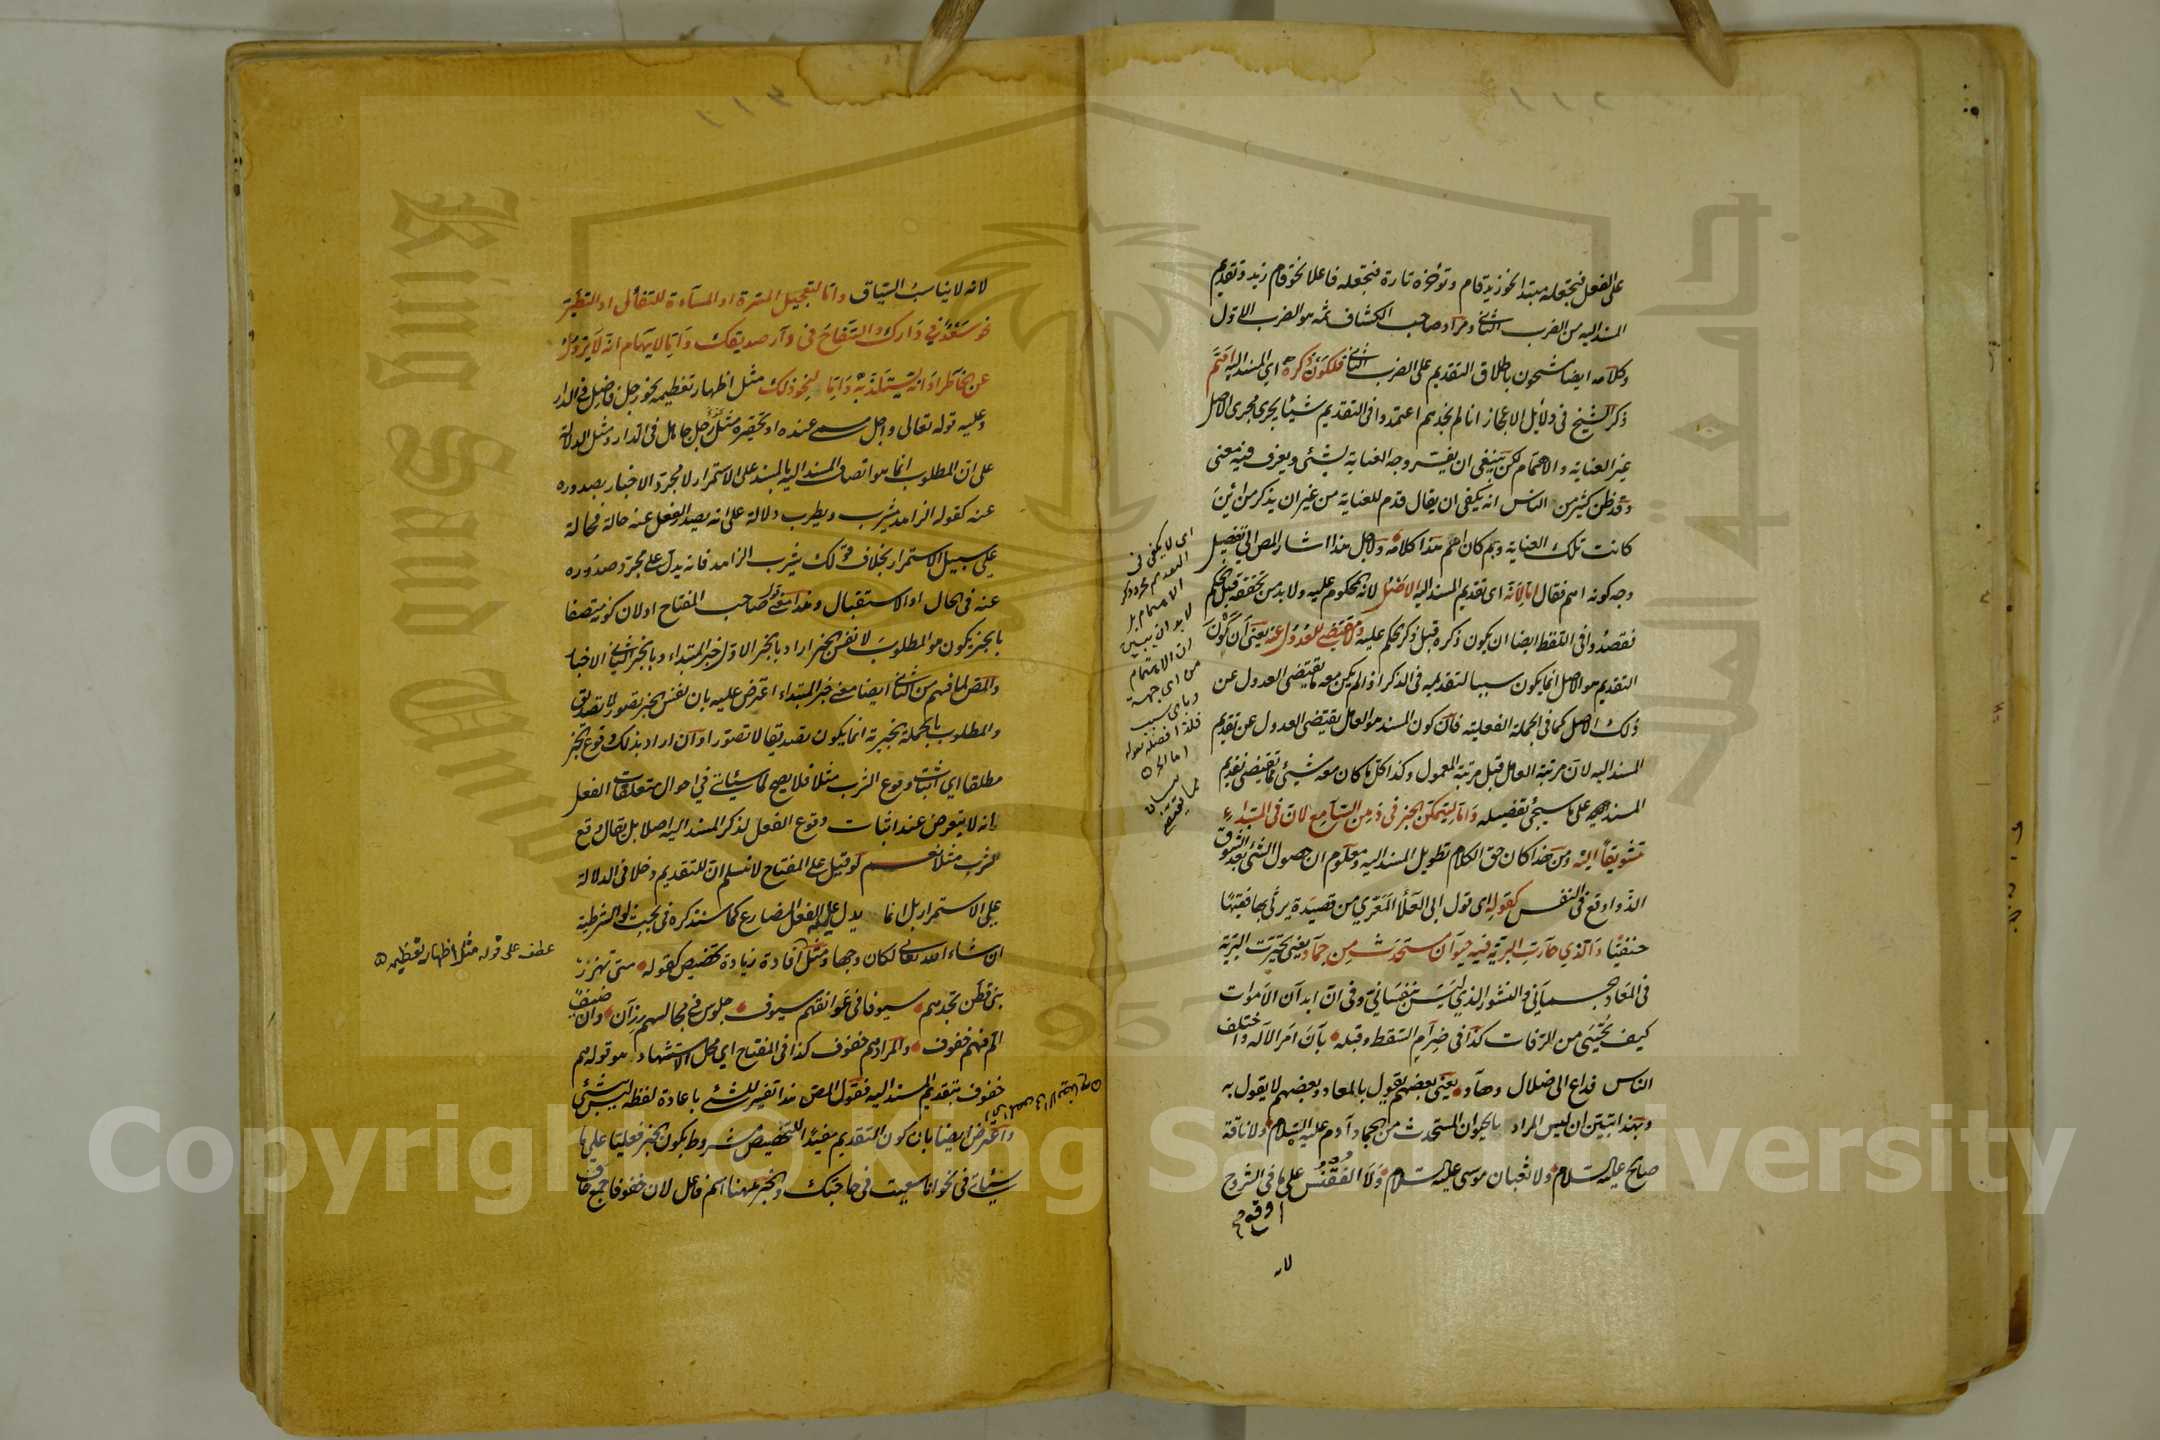 على الفعل فتجعله مبتدا نحو زيد قام وتؤخره تارة فتجعله فاعلا نحو قام زيد وتقديم
المسند اليه من الضرب الثاني ومراد صاحب الكشاف ثمه هو الضرب الاول
وكلامه ايضا مشحون باطلاق التقديم على الضرب الثاني فلكون ذكره اي المسند اليه اهم
ذكر الشيخ في دلايل الاعجاز انا لم نجدهم اعتمدوا في التقديم شيئا يجري مجرى الاصل
غير العناية والاهتمام لكن ينبغي ان يفسر وجه العناية بشئ ويعرف فيه معنى
وقد ظن كثير من الناس انه يكفي ان يقال قدم للعناية من غير ان يذكر من اين
كانت تلك العناية وبم كان اهم هذا كلامه ولاجل هذا اشار المص الى تفصيل
وجه كونه اهم فقال اما لانه اي تقديم المسند اليه الاصل لانه المحكوم عليه ولا بد من تحققه قبل الحكم
فقصدوا في اللفظ ايضا ان يكون ذكره قبل ذكر الحكم عليه ولا مقتضى للعدول عنه يعني ان كون
التقديم هو الاصل انما يكون سببا لتقديمه في الذكر اذا لم يكن معه ما يقتضى العدول عن
ذلك الاصل كما في الجملة الفعلية فان كون المسند هو العامل يقتضى العدول عن تقديم
المسند اليه لان مرتبة العامل قبل مرتبة المعمول وكذا كل ما كان معه شيئ مما يقتضى تقديم
المسند على ما سيجئ تفصيله واما ليتمكن الخبر في ذهن السامع لان في المبتداء
تشويقا اليه ومن هذا كان حق الكلام تطويل المسند اليه ومعلوم ان حصول الشئ بعد الشوق
الذ واوقع في النفس كقوله اي قول ابى العلأ المعري من قصيدة يرثي بها فقيها
حنفيا والذي حارت البرية فيه حيوان مستحدث من جماد يعني تحيرت البرية
في المعاد الجسماني والنشور الذي ليس بنفساني وفي ان ابدان الاموات
كيف تحيى من الرفات كذا في ضرام السقط وقبله بان امر الاله واختلف
الناس فداع الى ضلال وهاد يعني بعضهم يقول بالمعاد وبعضهم لا يقول به
وبهذا تبين ان ليس المراد بالحيوان المستحدث من الجماد آدم عليه السلام ولا ناقة
صالح عليه السلام ولا ثعبان موسى عليه السلام ولا القفنس على ما في الشروح
لانه
اي لا يكفى في
التقديم مجرد ذكر
الاهتمام بل
لا بد ان يبين
ان الاهتمام
من اي جهة
وباي سبب
فلذا فصله بقوله
اما الخ
لانه لا يناسب السياق واما لتعجيل المسرة او المساءة للتفأل او التطير
نحو سعد في دارك والسفاح في دار صديقك واما لايهام انه لا يزول
عن الخاطر او انه يستلذ به واما لنحو ذلك مثل اظهار تعظيمه نحو رجل فاضل في الدار
وعليه قوله تعالى واجل مسمى عنده او تحقيره مثل رجل جاهل في الدار ومثل الدلالة
على ان المطلوب انما هو اتصاف المسند اليه بالمسند على الاستمرار لا مجرد الاخبار بصدوره
عنه كقوله الزاهد يشرب ويطرب دلالة على انه يصدر الفعل عنه حالة فحالة
على سبيل الاستمرار بخلاف قولك يشرب الزاهد فانه يدل على مجرد صدوره
عنه في الحال او الاستقبال وهذا معنى قول صاحب المفتاح او لان كونه متصفا
بالخبر يكون هو المطلوب لا نفس الخبر اراد بالخبر الاول خبر المبتداء وبالخبر الثاني الاخبار
والمص لما فهم من الثاني ايضا معنى خبر المبتداء اعترض عليه بان نفس الخبر تصور لا تصديق
والمطلوب بالجملة الخبرية انما يكون تصديقا لا تصورا وان اراد بذلك وقوع الخبر
مطلقا اي اثبات وقوع الشرب مثلا فلا يصح لما سيأتي في احوال متعلقات الفعل
انه لا يتعرض عند اثبات وقوع الفعل لذكر المسند اليه اصلا بل يقال وقع
الشرب مثلا نعم لو قيل على المفتاح لا نسلم ان للتقديم دخلا في الدلالة
على الاستمرار بل انما يدل عليه الفعل المضارع كما سنذكره في بحث لو الشرطية
ان شاء الله تعالى لكان وجها ومثل افادة زيادة تخصيص كقوله متى تهزز
بني قطن تجدهم سيوفا في عواتقهم سيوف جلوس في مجالسهم رزان وان ضيف
الم فهم خفوف والمراد هم خفوف كذا في المفتاح اي محل الاستشهاد هو قوله هم
خفوف بتقديم المسند اليه فقول المص هذا تفسير للشئ باعادة لفظه ليس بشئ
واعترض ايضا بان كون التقديم مفيدا للتخصيص مشروط بكون الخبر فعليا على ما
سيأتي في نحو انا سعيت في حاجتك والخبر ههنا اسم فاعل لان خفوفا جمع خاف
عطف على قوله مثل اظهار تعظيمه
King Saud University
جامعة الملك سعود
1957
Copyright © King Saud University